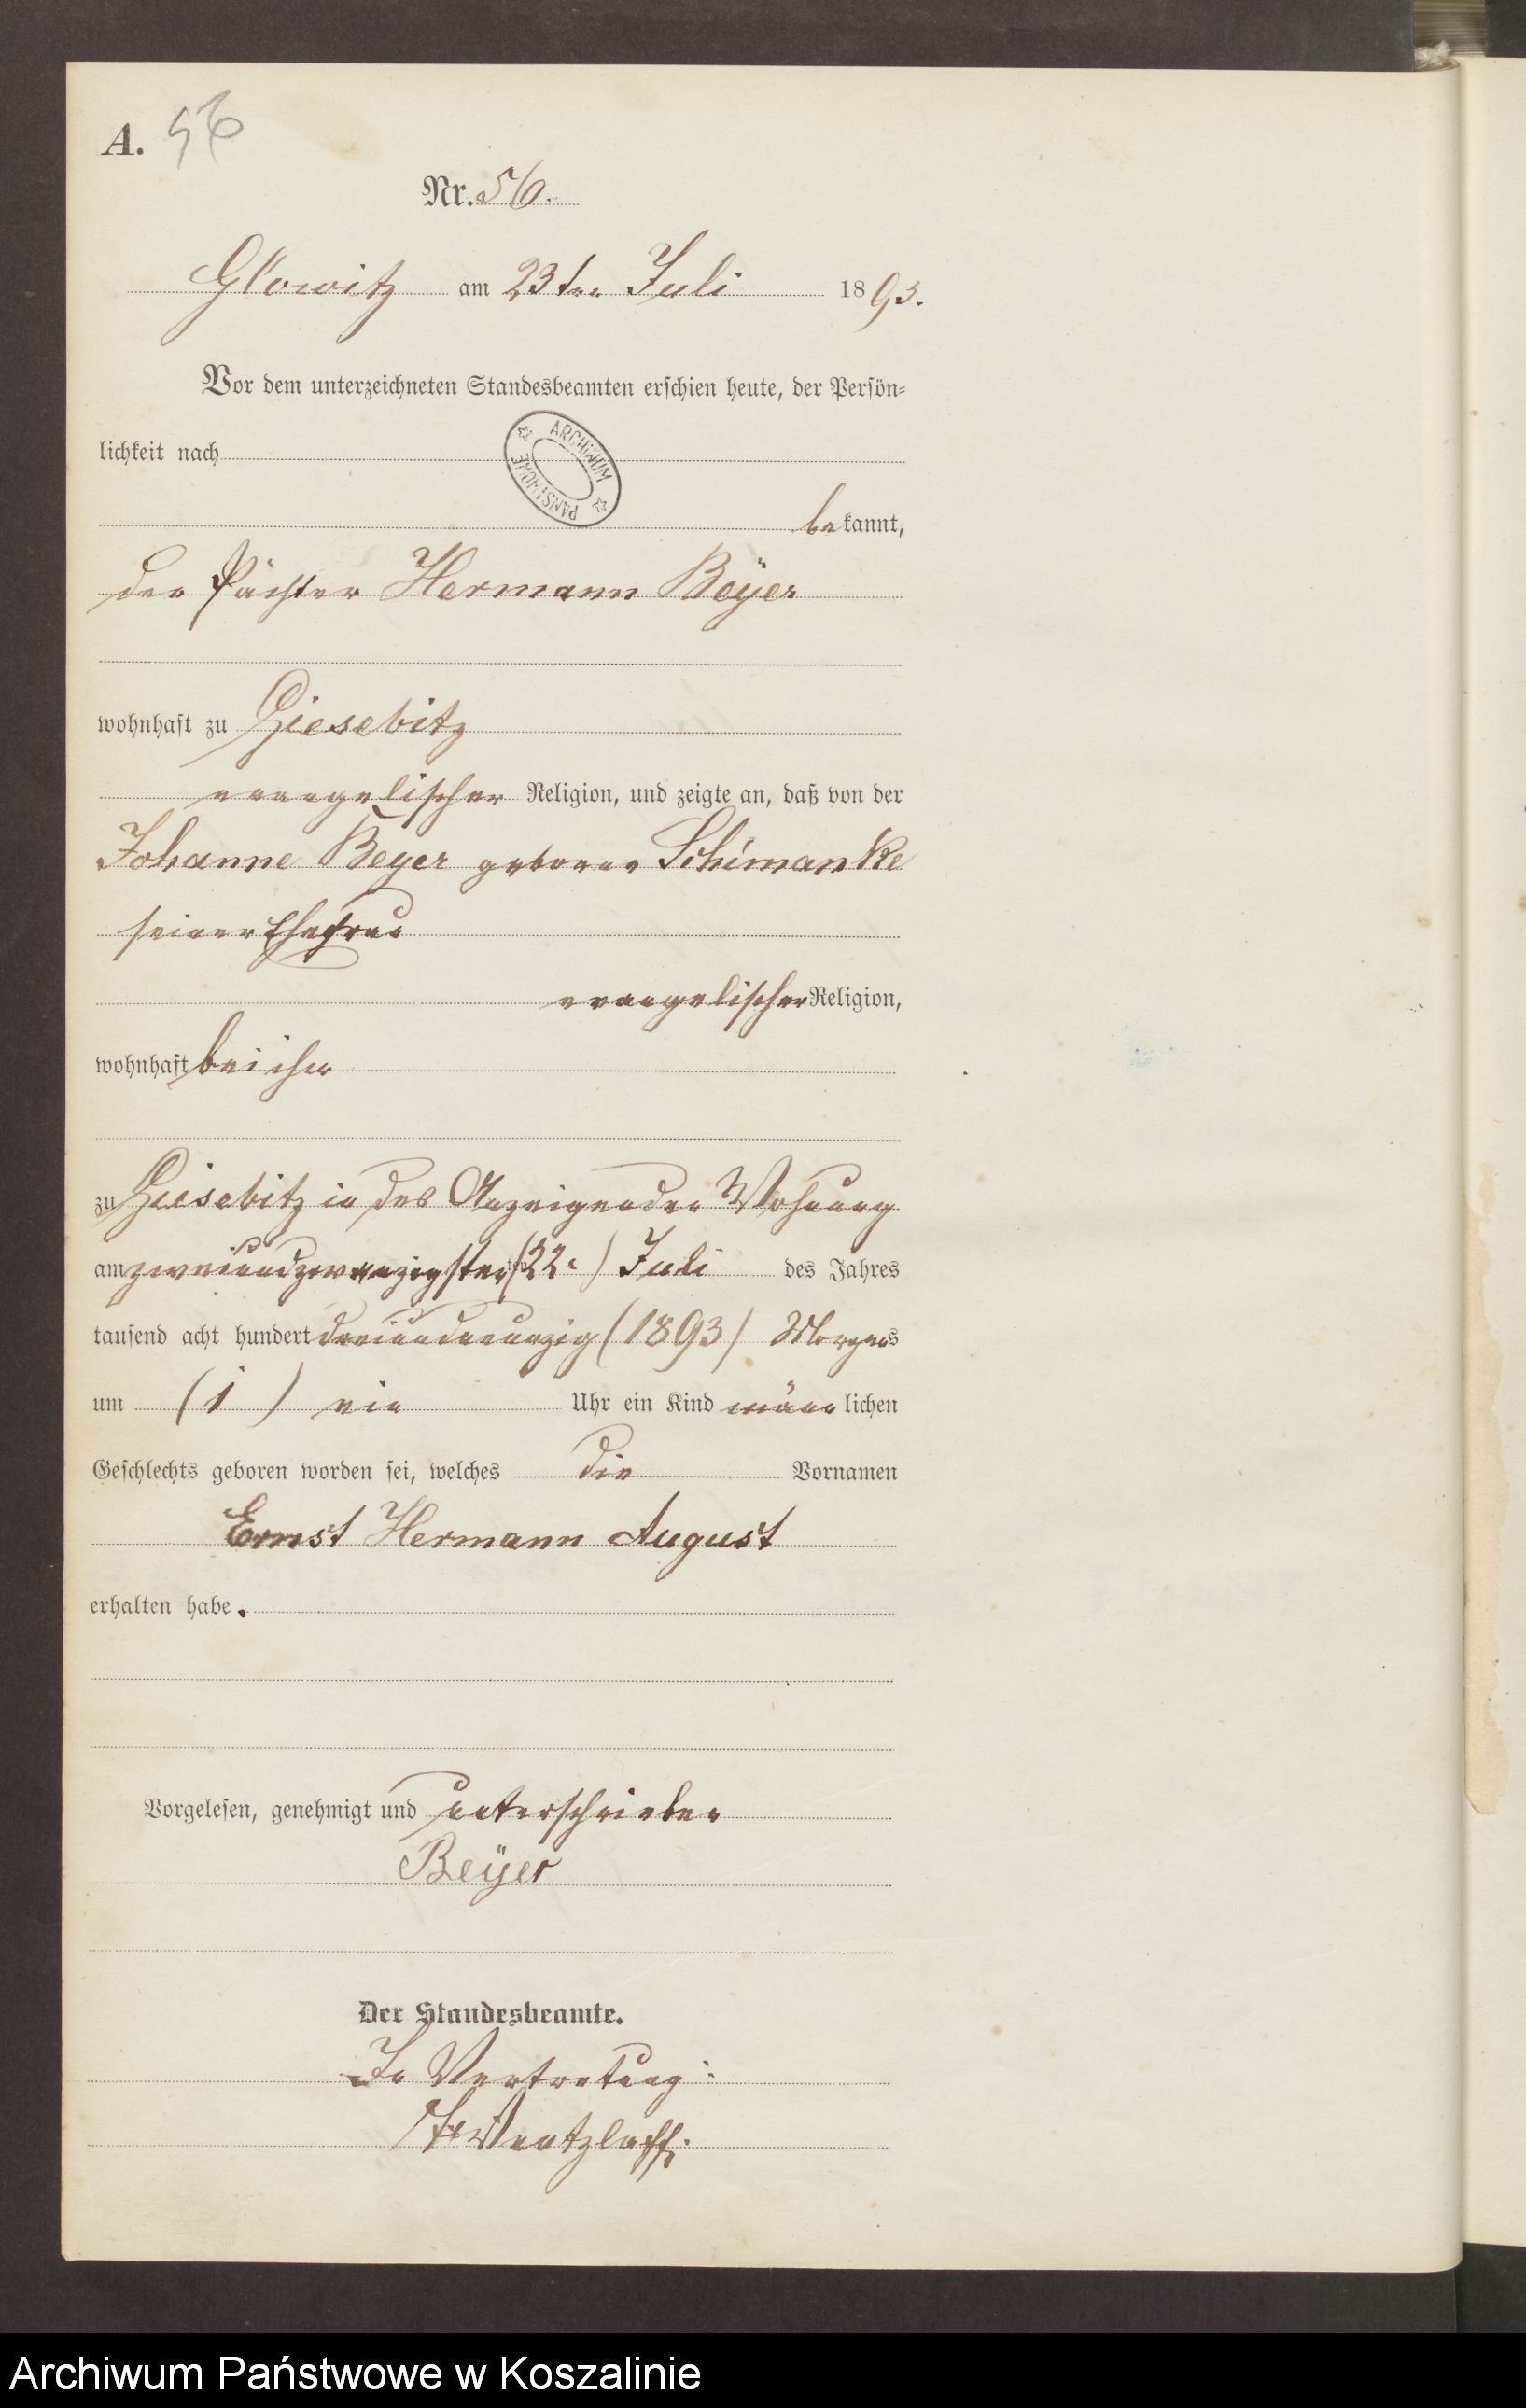 A. 56
Nr. 56.
Glowitz am 23ten Juli 1893.
Vor dem unterzeichneten Standesbeamten erschien heute, der Persön-
lichkeit nach
ARCHIWUM PAŃSTWOWE
bekannt,
der Pächter Hermann Beÿer
wohnhaft zu Giesebitz
evangelischer Religion, und zeigte an, daß von der
Johanne Beyer geborne Schimanke
seiner Ehefrau
evangelischer Religion,
wohnhaft bei ihm
zu Giesebitz in des Anzeigenden Wohnung
am zweiundzwanzigsten (22.) Juli des Jahres
tausend acht hundert dreiundneunzig (1893) Morgens
um (1) ein Uhr ein Kind männlichen
Geschlechts geboren worden sei, welches die Vornamen
Ernst Hermann August
erhalten habe.
Vorgelesen, genehmigt und unterschrieben
Beÿer
Der Standesbeamte.
In Vertretung:
Wentzlaff.
Archiwum Państwowe w Koszalinie